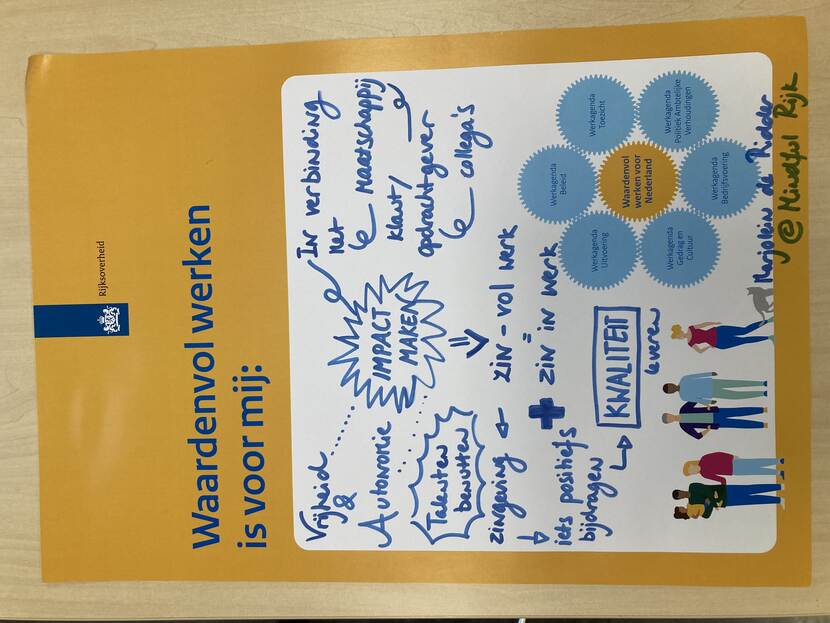 Rijksoverheid
Waardenvol werken
is voor mij:
Vrijheid
&
Autonomie
Talenten
benutten
IMPACT
MAKEN
In verbinding
met
maatschappij
klant/
opdrachtgever
collega's
zingeving
zin-vol werk
=
zin in werk
+
iets positiefs
bijdragen
KWALITEIT
leveren
Werkagenda
Uitvoering
Werkagenda
Beleid
Werkagenda
Toezicht
Werkagenda
Gedrag en
Cultuur
Waardenvol
werken voor
Nederland
Werkagenda
Politiek Ambtelijke
Verhoudingen
Werkagenda
Bedrijfsvoering
Marjolein de Ridder
@ Mindful Rijk